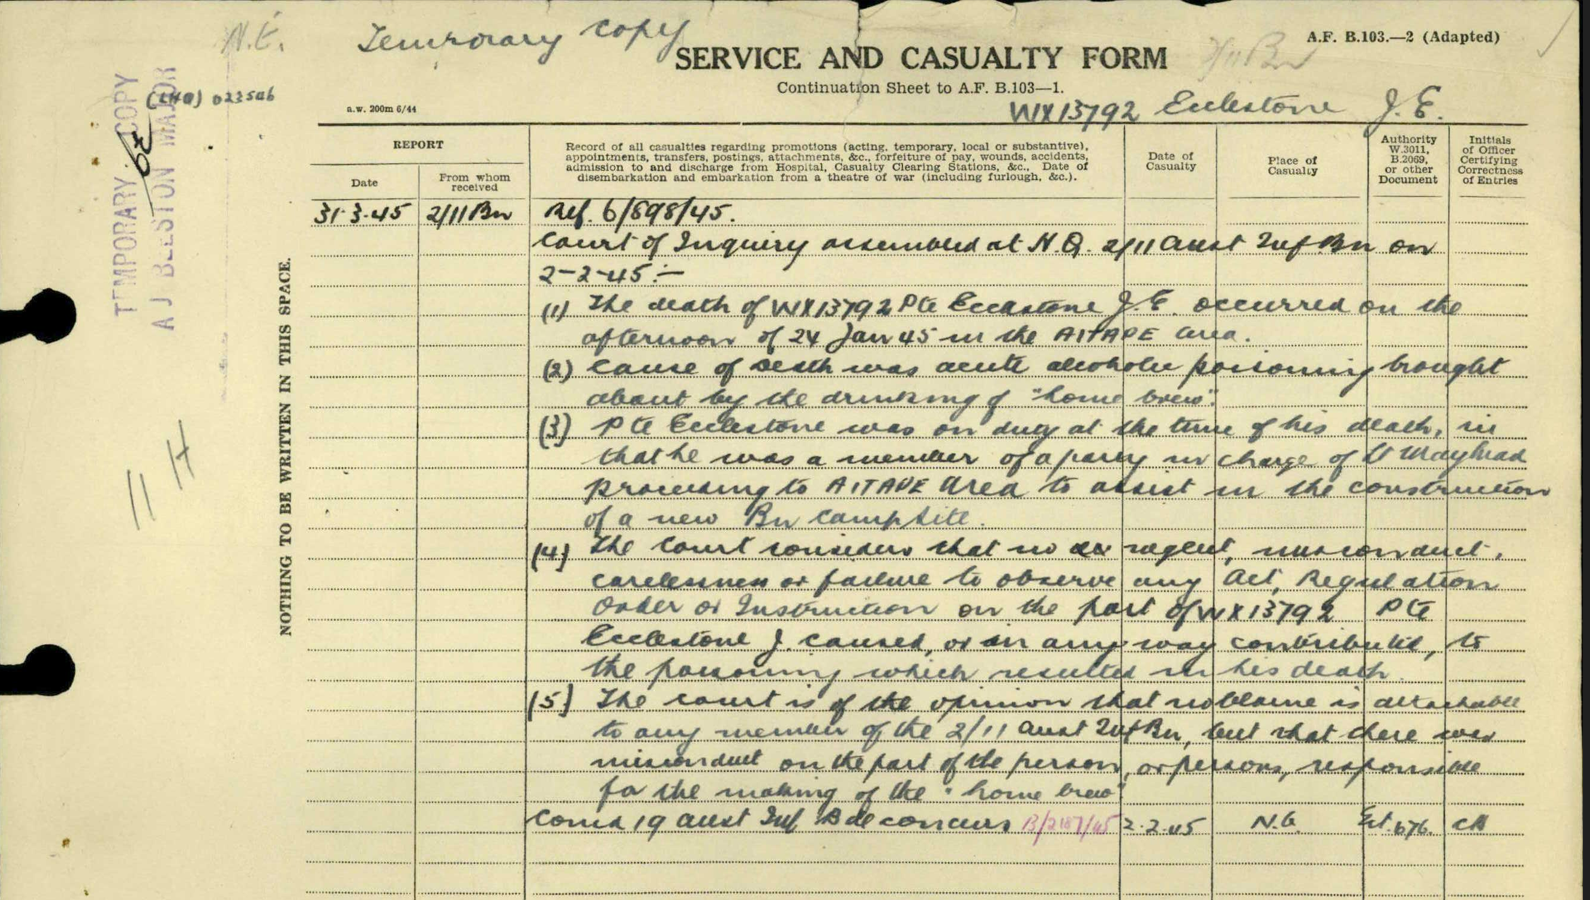 N.G.
Temporary copy
A.F. B.103.—2 (Adapted)
SERVICE AND CASUALTY FORM
Continuation Sheet to A.F. B.103—1.
a.w. 200m 6/44
WX13792 Ecclestone J. E.
TEMPORARY COPY
A J BEESTON MAJOR
NOTHING TO BE WRITTEN IN THIS SPACE.
11 H
REPORT
Date
From whom
received
Record of all casualties regarding promotions (acting, temporary, local or substantive),
appointments, transfers, postings, attachments, &c., forfeiture of pay, wounds, accidents,
admission to and discharge from Hospital, Casualty Clearing Stations, &c., Date of
disembarkation and embarkation from a theatre of war (including furlough, &c.).
Date of
Casualty
Place of
Casualty
Authority
W.3011,
B.2069,
or other
Document
Initials
of Officer
Certifying
Correctness
of Entries
31.3.45 2/11 Bn Ref. 6/898/45.
Court of Inquiry assembled at H.Q. 2/11 Aust Inf. Bn on
2-2-45:-
(1) The death of WX13792 Pte Ecclestone J.E. occurred on the
afternoon of 24 Jan 45 in the AITAPE area.
(2) Cause of death was acute alcoholic poisoning brought
about by the drinking of "home brew".
(3) Pte Ecclestone was on duty at the time of his death, in
that he was a member of a party in charge of Lt
proceeding to AITAPE Area to assist in the construction
of a new Bn Camp Site.
(4) The Court considers that no neglect, misconduct,
carelessness or failure to observe any Act, Regulation
Order or Instruction on the part of WX13792 Pte
Ecclestone J. caused, or in any way contributed, to
the poisoning which resulted in his death.
(5) The court is of the opinion that no blame is attachable
to any member of the 2/11 Aust Inf Bn, but that there was
misconduct on the part of the person, or persons, responsible
for the making of the "home brew"
Comd 19 Aust Inf Bde concurs B/2187/45 2.2.45 N.G. 676.